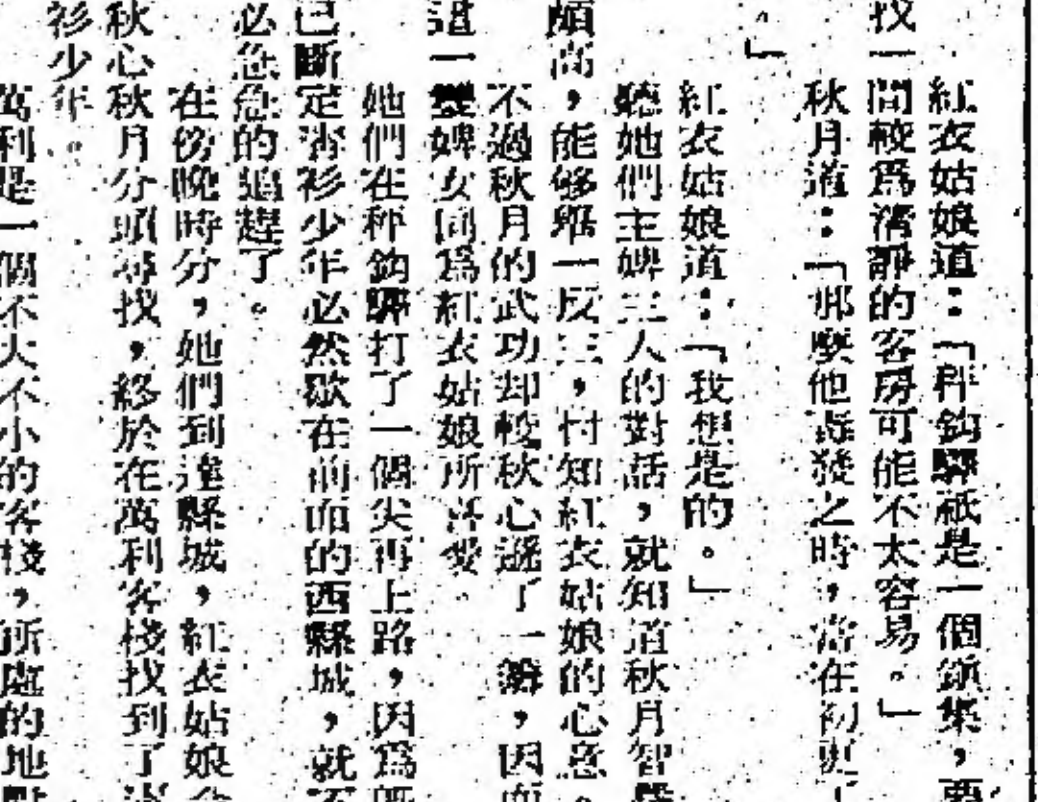 紅衣姑娘道：「秤鈎驛祇是一個鎮集，要
找一間較爲清靜的客房可能不太容易。」
秋月道：「那麼他毒發之時，當在初更
。」
紅衣姑娘道：「我想是的。」
聽她們主婢三人的對話，就知道秋月智
頗高，能够舉一反三，忖知紅衣姑娘的心意。
不過秋月的武功却較秋心遜了一籌，因而
這一雙婢女同爲紅衣姑娘所喜愛。
她們在秤鈎驛打了一個尖再上路，因爲既
已斷定青衫少年必然歇在前面的西縣城，就不
必急急的追趕了。
在傍晚時分，她們到達縣城，紅衣姑娘
秋心秋月分頭尋找，終於在萬利客棧找到了
衫少年。
萬利是一個不大不小的客棧，所處的地點